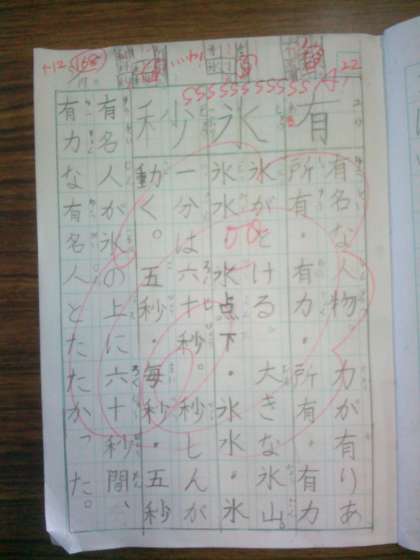 有
有名な人物。力が有りあ
所有・有力・所有・有力
氷
氷がとける。大きな氷山。
氷水・氷点下・氷水・氷
秒
一分は六十秒。秒しんが
動く。五秒・毎秒・五秒
有名人が氷の上に六十秒間、
有力な有名人とたたかった。